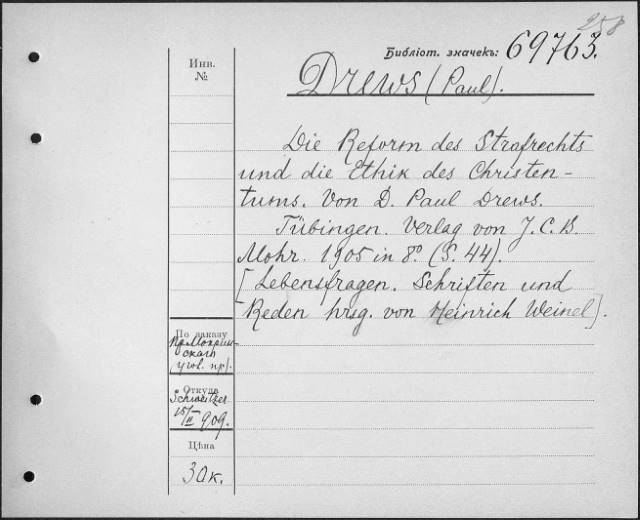 258
Библіот. значекъ: 69763.
Инв.
№
Drews (Paul).
Die Reform des Strafrechts
und die Ethik des Christen-
tums. Von D. Paul Drews.
Tübingen. Verlag von J. C. B.
Mohr. 1905 in 8° (S. 44).
[Lebensfragen. Schriften und
Reden hrsg. von Heinrich Weinel].
По заказу
скаго
(угол. пр).
Откуда
Schweitzer
15/II 909.
Цѣна
30к.